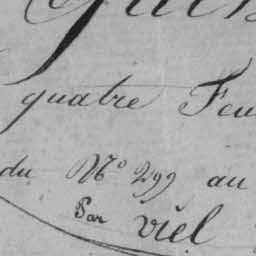 quatre Feu
du N° 299 au
Par viel